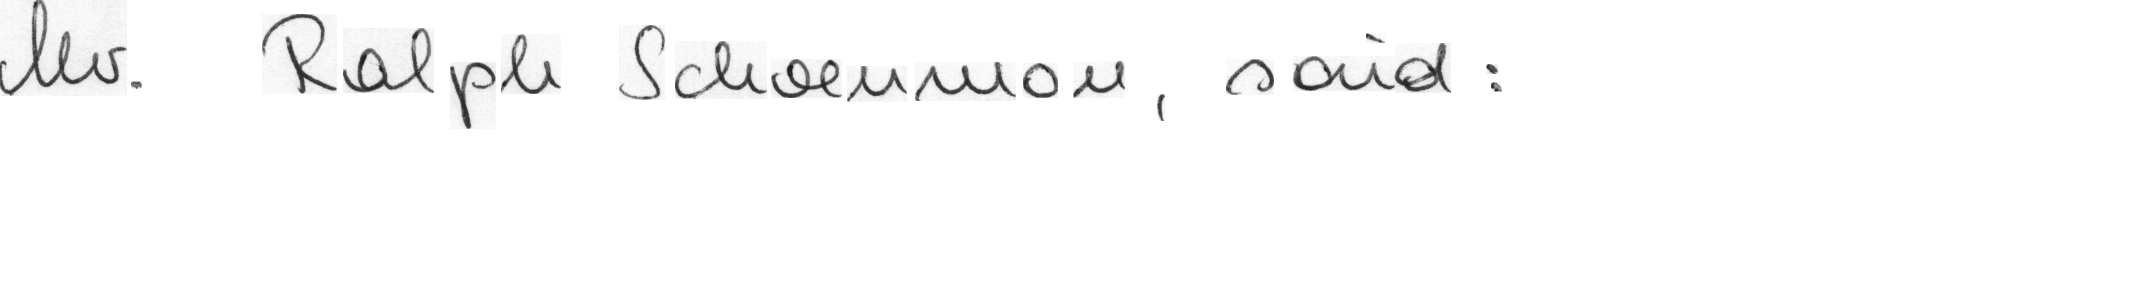 Mr. Ralph Schoenman, said: